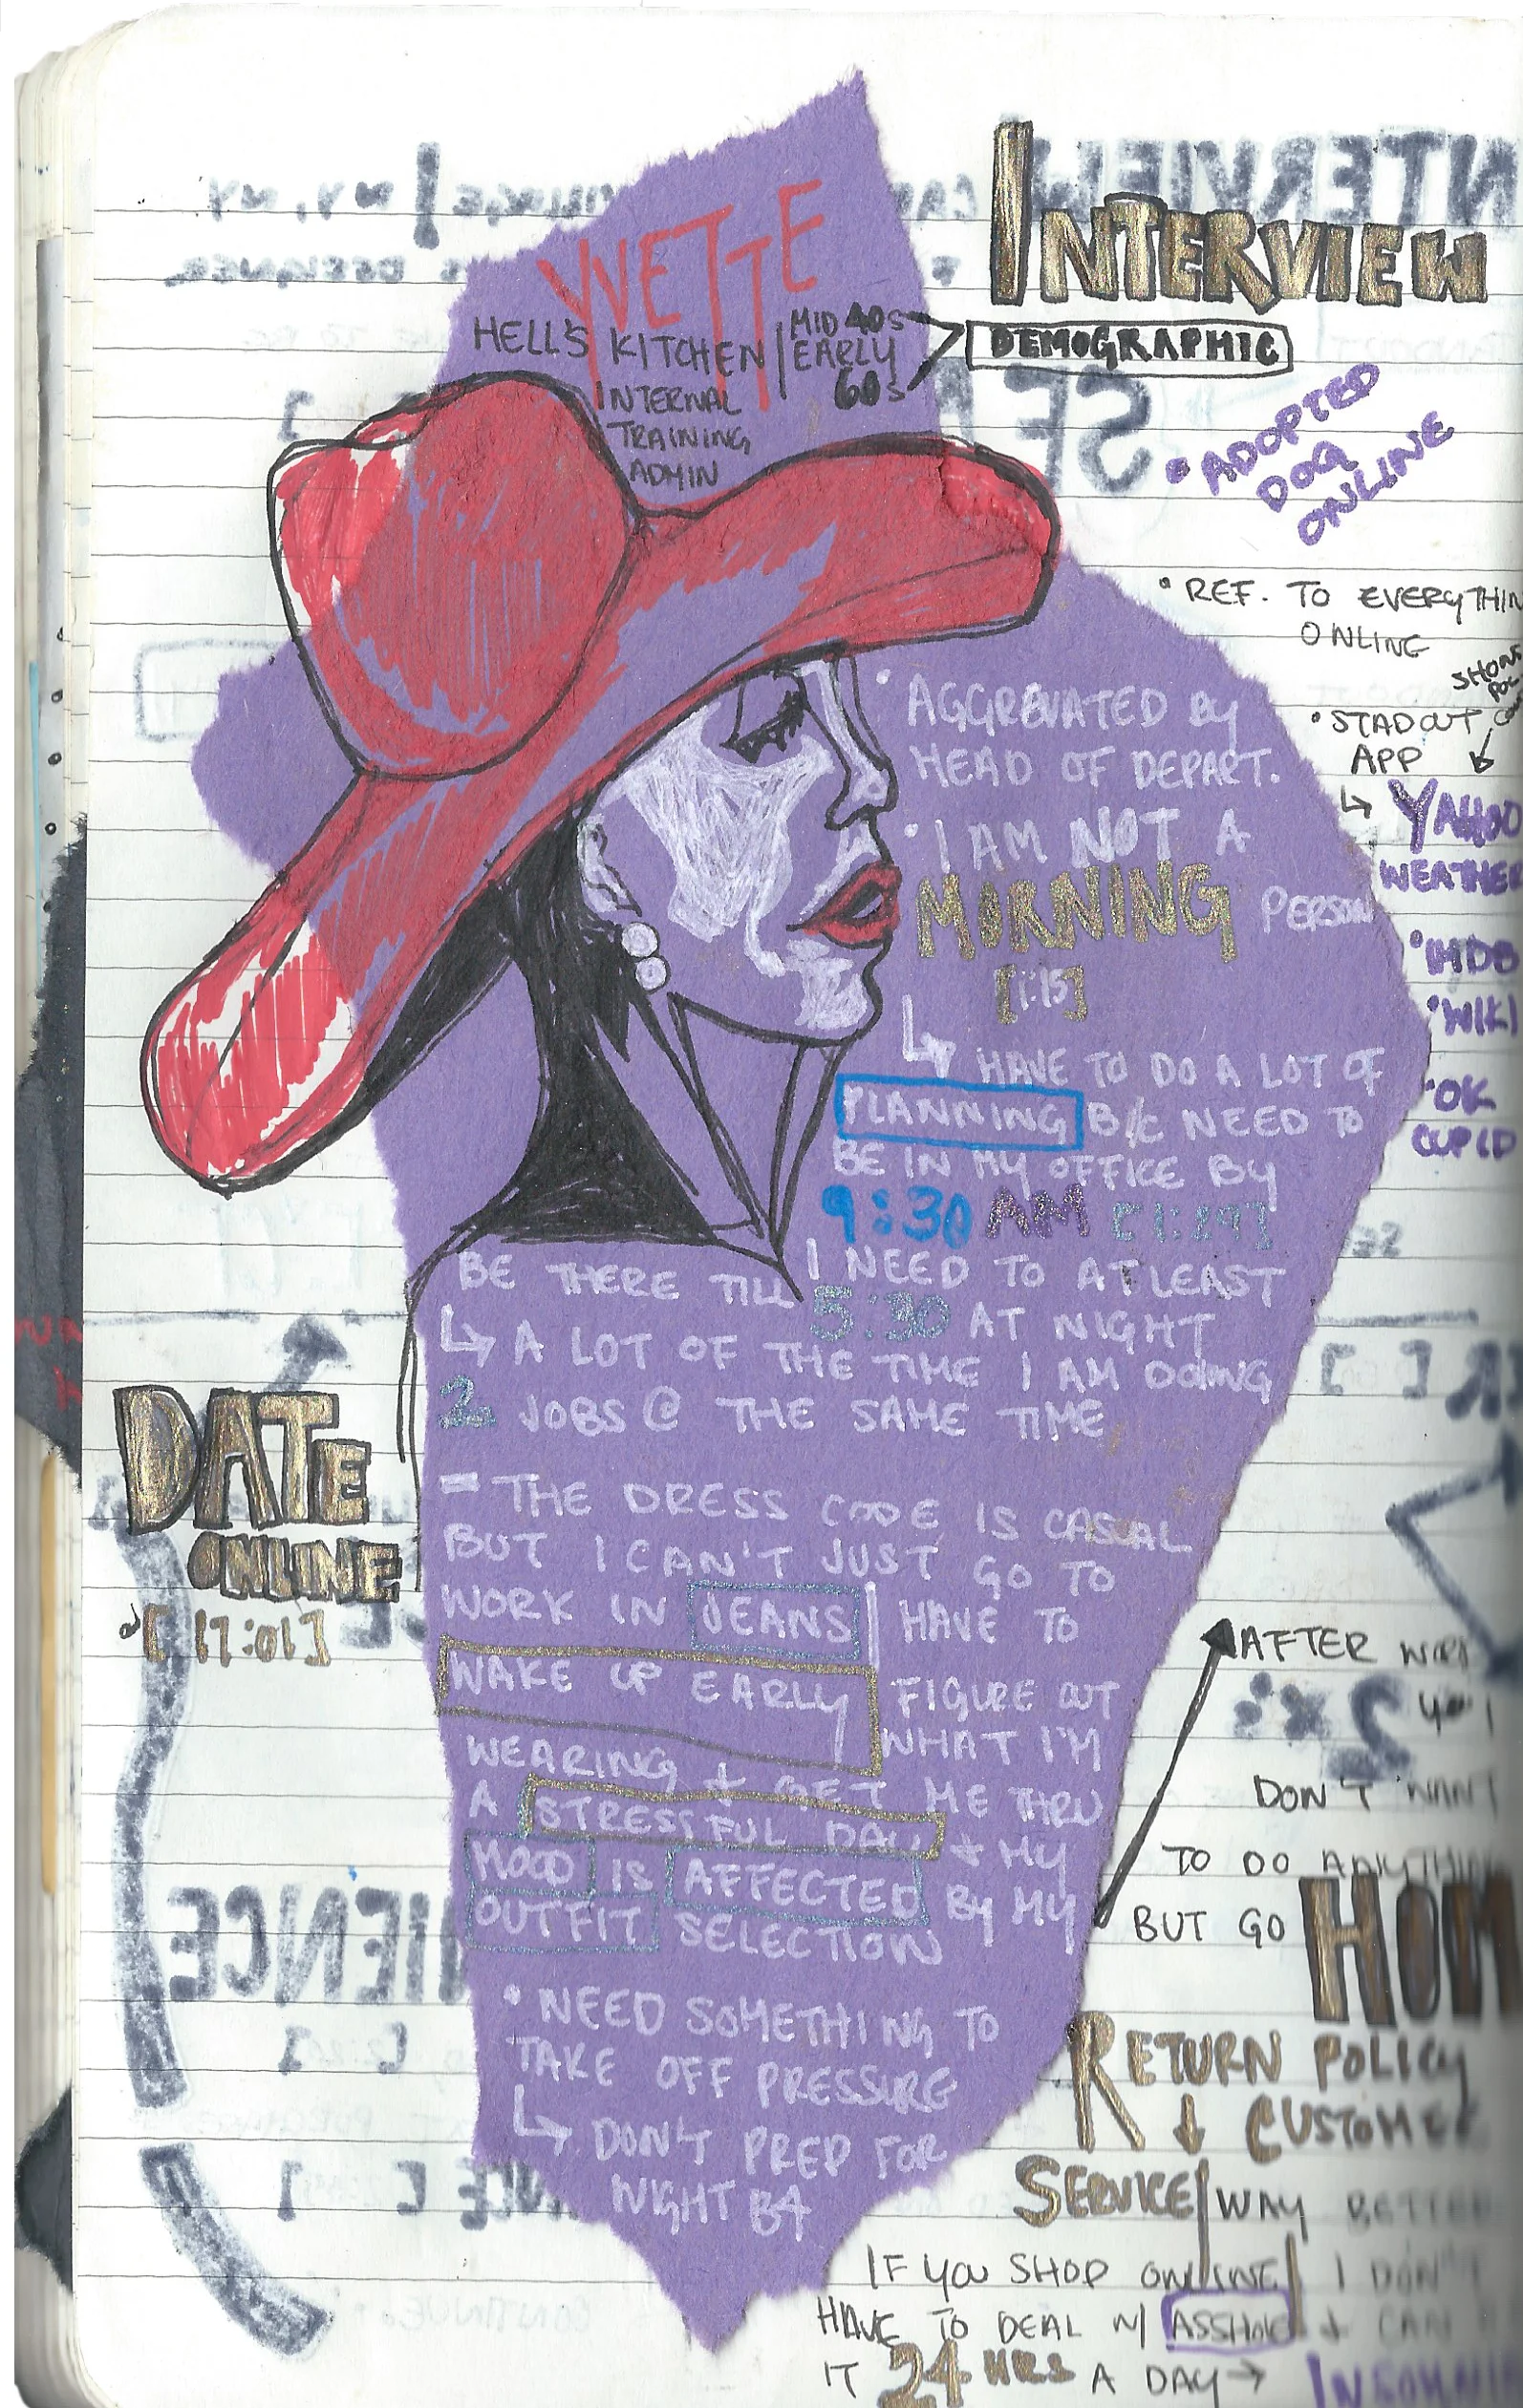 INTERVIEW
DEMOGRAPHIC
YVETTE
HELL'S KITCHEN | MID 40s
EARLY
60s
INTERNAL
TRAINING
ADMIN
• ADOPTED
DOG
ONLINE
• REF. TO EVERYTHIN
ONLINE
• STADOUT
APP
↳ YAHOO
WEATHER
• IMDB
• WIKI
• OK
CUPID
• AGGREVATED BY
HEAD OF DEPART.
• I AM NOT A
MORNING PERSON
[1:15]
↳ HAVE TO DO A LOT OF
PLANNING B/C NEED TO
BE IN MY OFFICE BY
9:30 AM [1:29]
I NEED TO ATLEAST
BE THERE TILL 5:30 AT NIGHT
↳ A LOT OF THE TIME I AM DOING
2 JOBS @ THE SAME TIME
= THE DRESS CODE IS CASUAL
BUT I CAN'T JUST GO TO
WORK IN JEANS | HAVE TO
WAKE UP EARLY FIGURE OUT
WHAT I'M
WEARING + GET ME THRU
A STRESSFUL DAY + MY
MOOD IS AFFECTED BY MY
OUTFIT SELECTION
• NEED SOMETHING TO
TAKE OFF PRESSURE
↳ DON'T PREP FOR
NIGHT B4
DATE
ONLINE
[17:01]
AFTER
DON'T WANT
TO DO ANYTHIN
BUT GO HOM
RETURN POLICY
↓ CUSTOMER
SERVICE | WAY BETTER
IF YOU SHOP ONLINE | I DON'T
HAVE TO DEAL W/ ASSHOLE + CAN
IT 24 HRS A DAY → INSOMNI